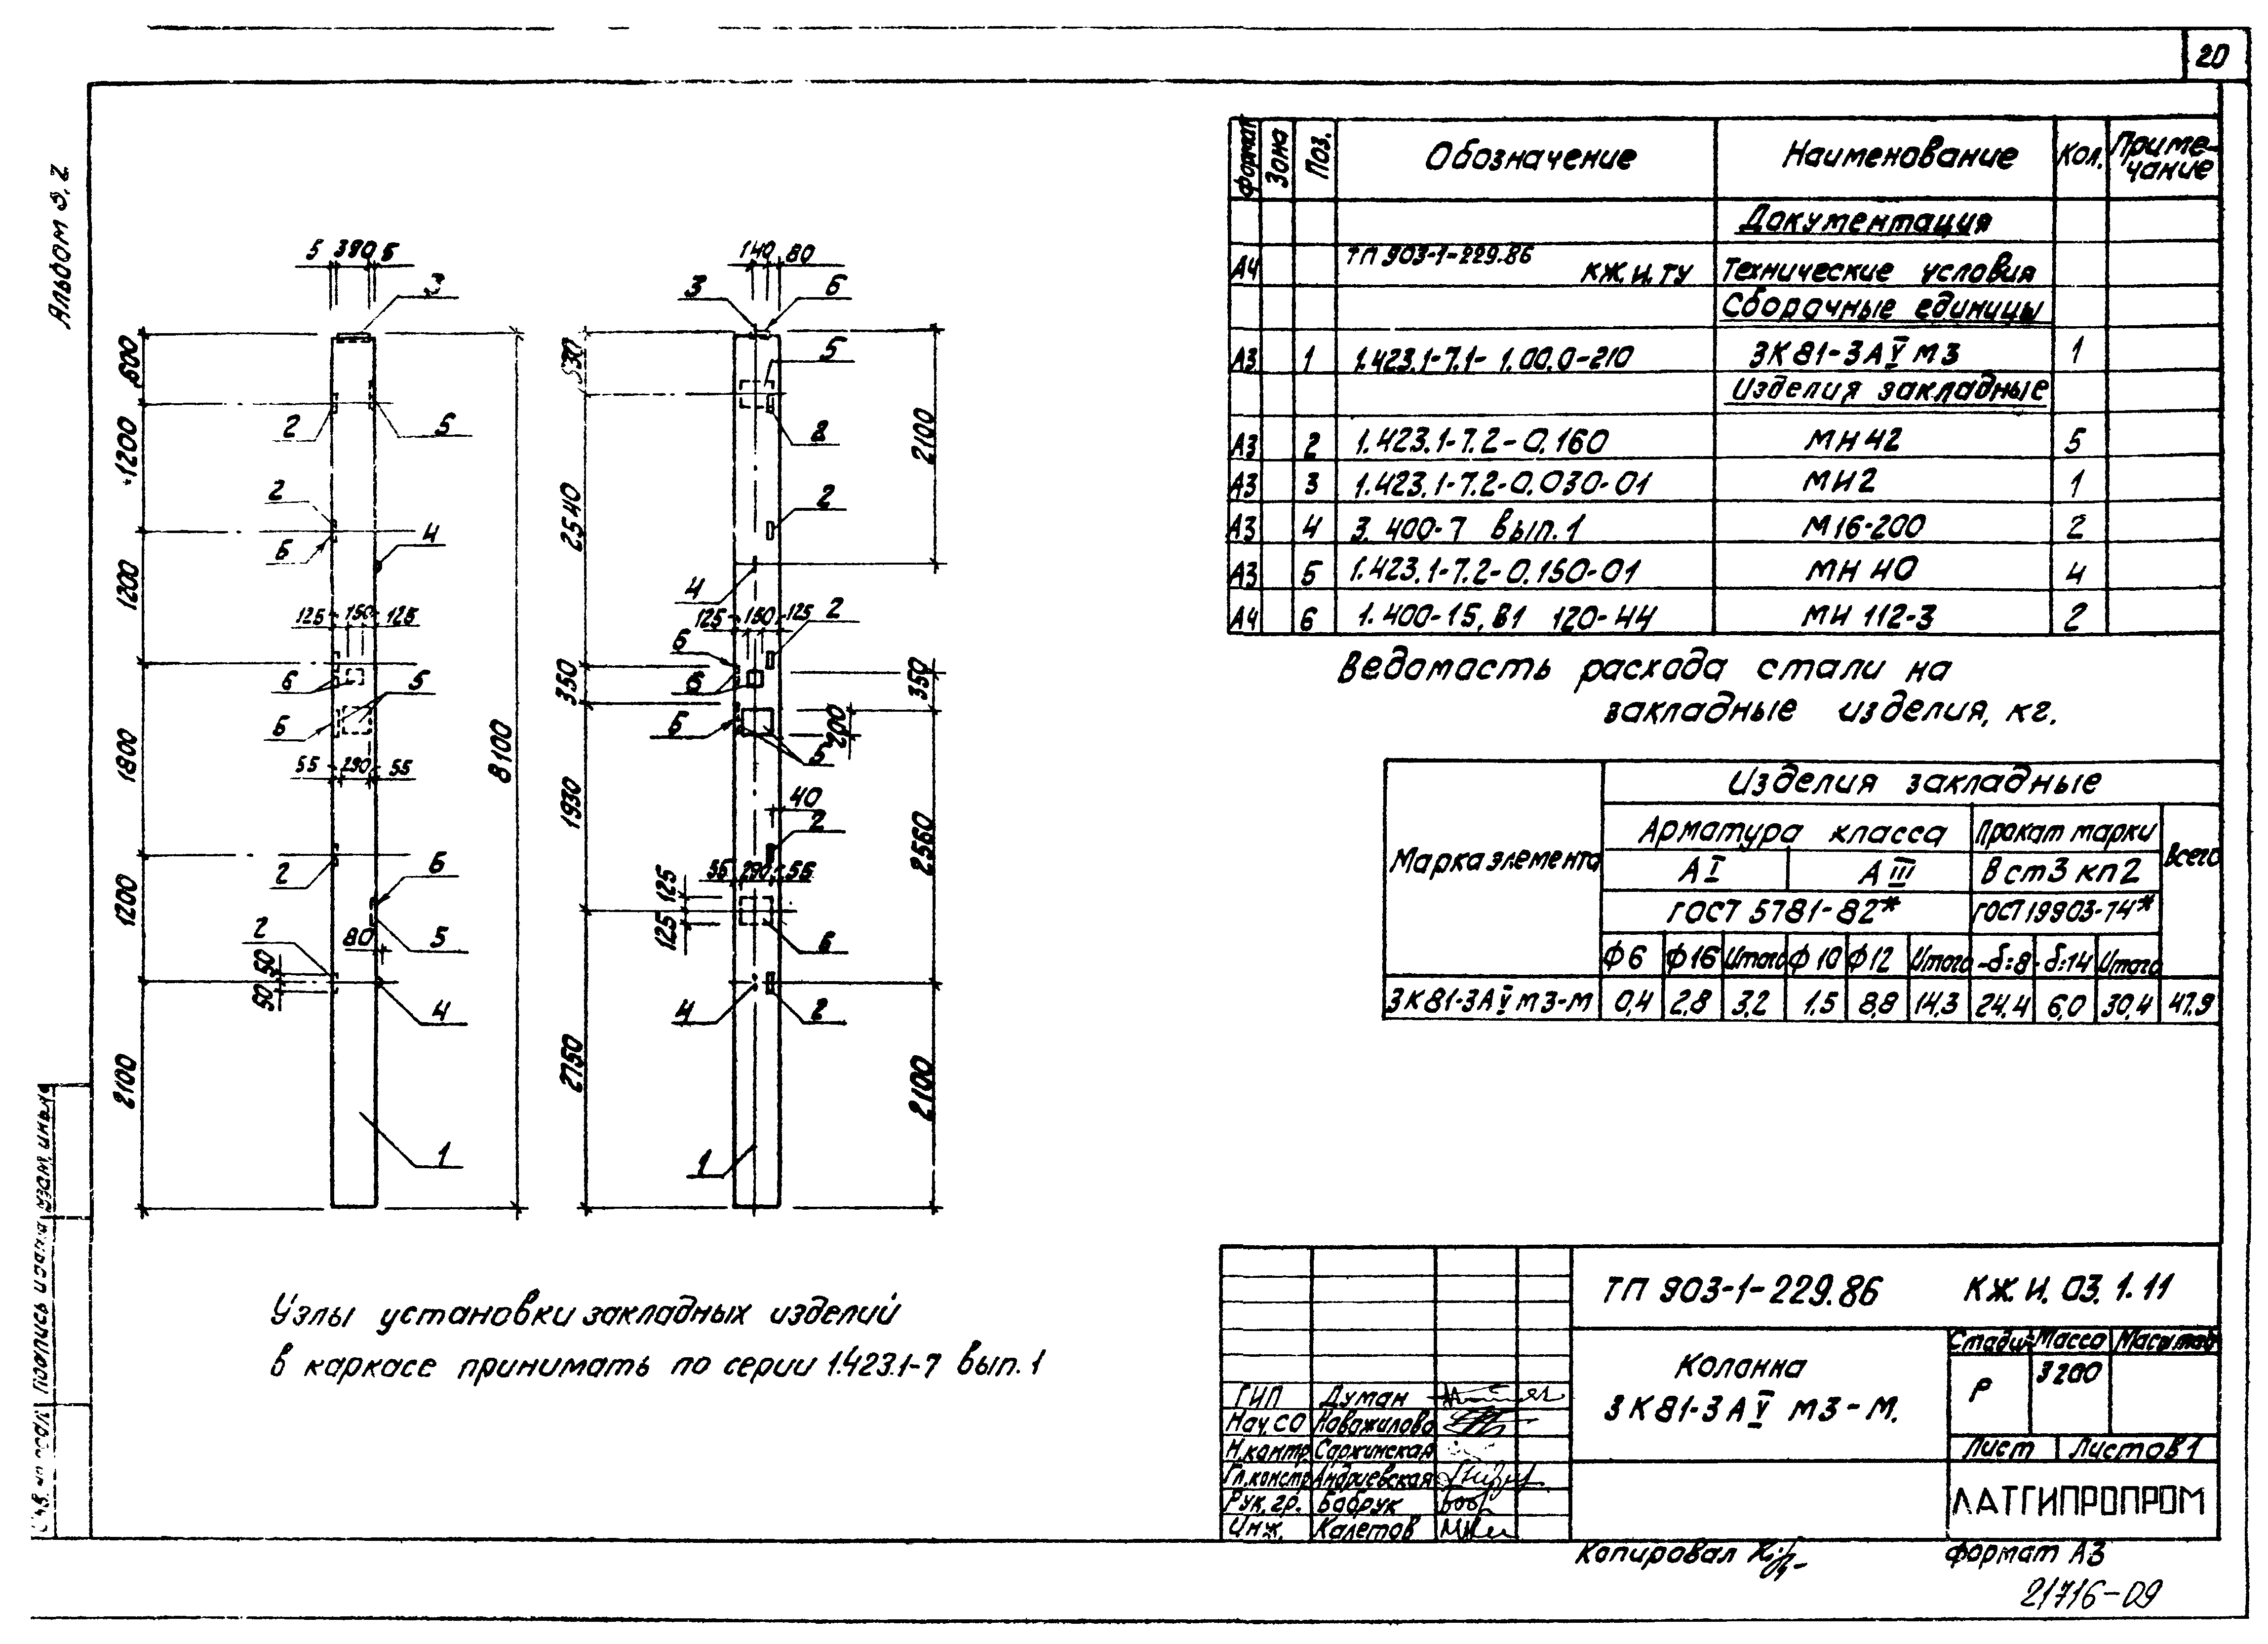 20
Альбом 9.2
Формат Зона Поз. Обозначение Наименование Кол. Приме-чание
Документация
А4 ТП 903-1-229.86 КЖ.И.ТУ Технические условия
Сборочные единицы
А3 1 1.423.1-7.1-1.00.0-210 3К81-3АⅤМ3 1
Изделия закладные
А3 2 1.423.1-7.2-0.160 МН42 5
А3 3 1.423.1-7.2-0.030-01 МН2 1
А3 4 3.400-7 вып.1 М16-200 2
А3 5 1.423.1-7.2-0.150-01 МН40 4
А4 6 1.400-15.В1 120-44 МН 112-3 2
Ведомасть расхода стали на
закладные изделия, кг.
Марка элемента
Изделия закладные
Арматура класса Прокат марки Всего
А Ⅰ А Ⅲ В ст3 кп2
ГОСТ 5781-82* ГОСТ 19903-74*
Ф6 Ф16 Итого Ф10 Ф12 Итого -δ=8 -δ=14 Итого
3К81-3АⅤМ3-М 0,4 2,8 3,2 1.5 8,8 14.3 24.4 6,0 30,4 47.9
5 390 5
3
600
2 5
1200
2
6 4
1200
125 150 125
6 5
6
1800
55 290 55
8100
2 6
1200
2 80 5
50
50
4
2100
1
140 80
3 6
530
5
2
2100
2540
2
4
125 150 125 2
6
6
350
350
6 5
200
1930
40
2
55 290 55
125
125
6
2560
4 2
2750
2100
1
Узлы установки закладных изделий
в каркасе принимать по серии 1.423.1-7 вып.1
ТП 903-1-229.86 КЖ.И. 03.1.11
Колонна
3К81-3АⅤ М3-М.
Стадия Масса Масштаб
Р 3200
Лист Листов 1
ЛАТГИПРОПРОМ
ГИП Думан
Нач.СО Новожилова
Н.контр. Саржинская
Гл.констр Андриевская
Рук.гр. Бобрук
Инж. Калетов
Копировал Формат А3
21716-09